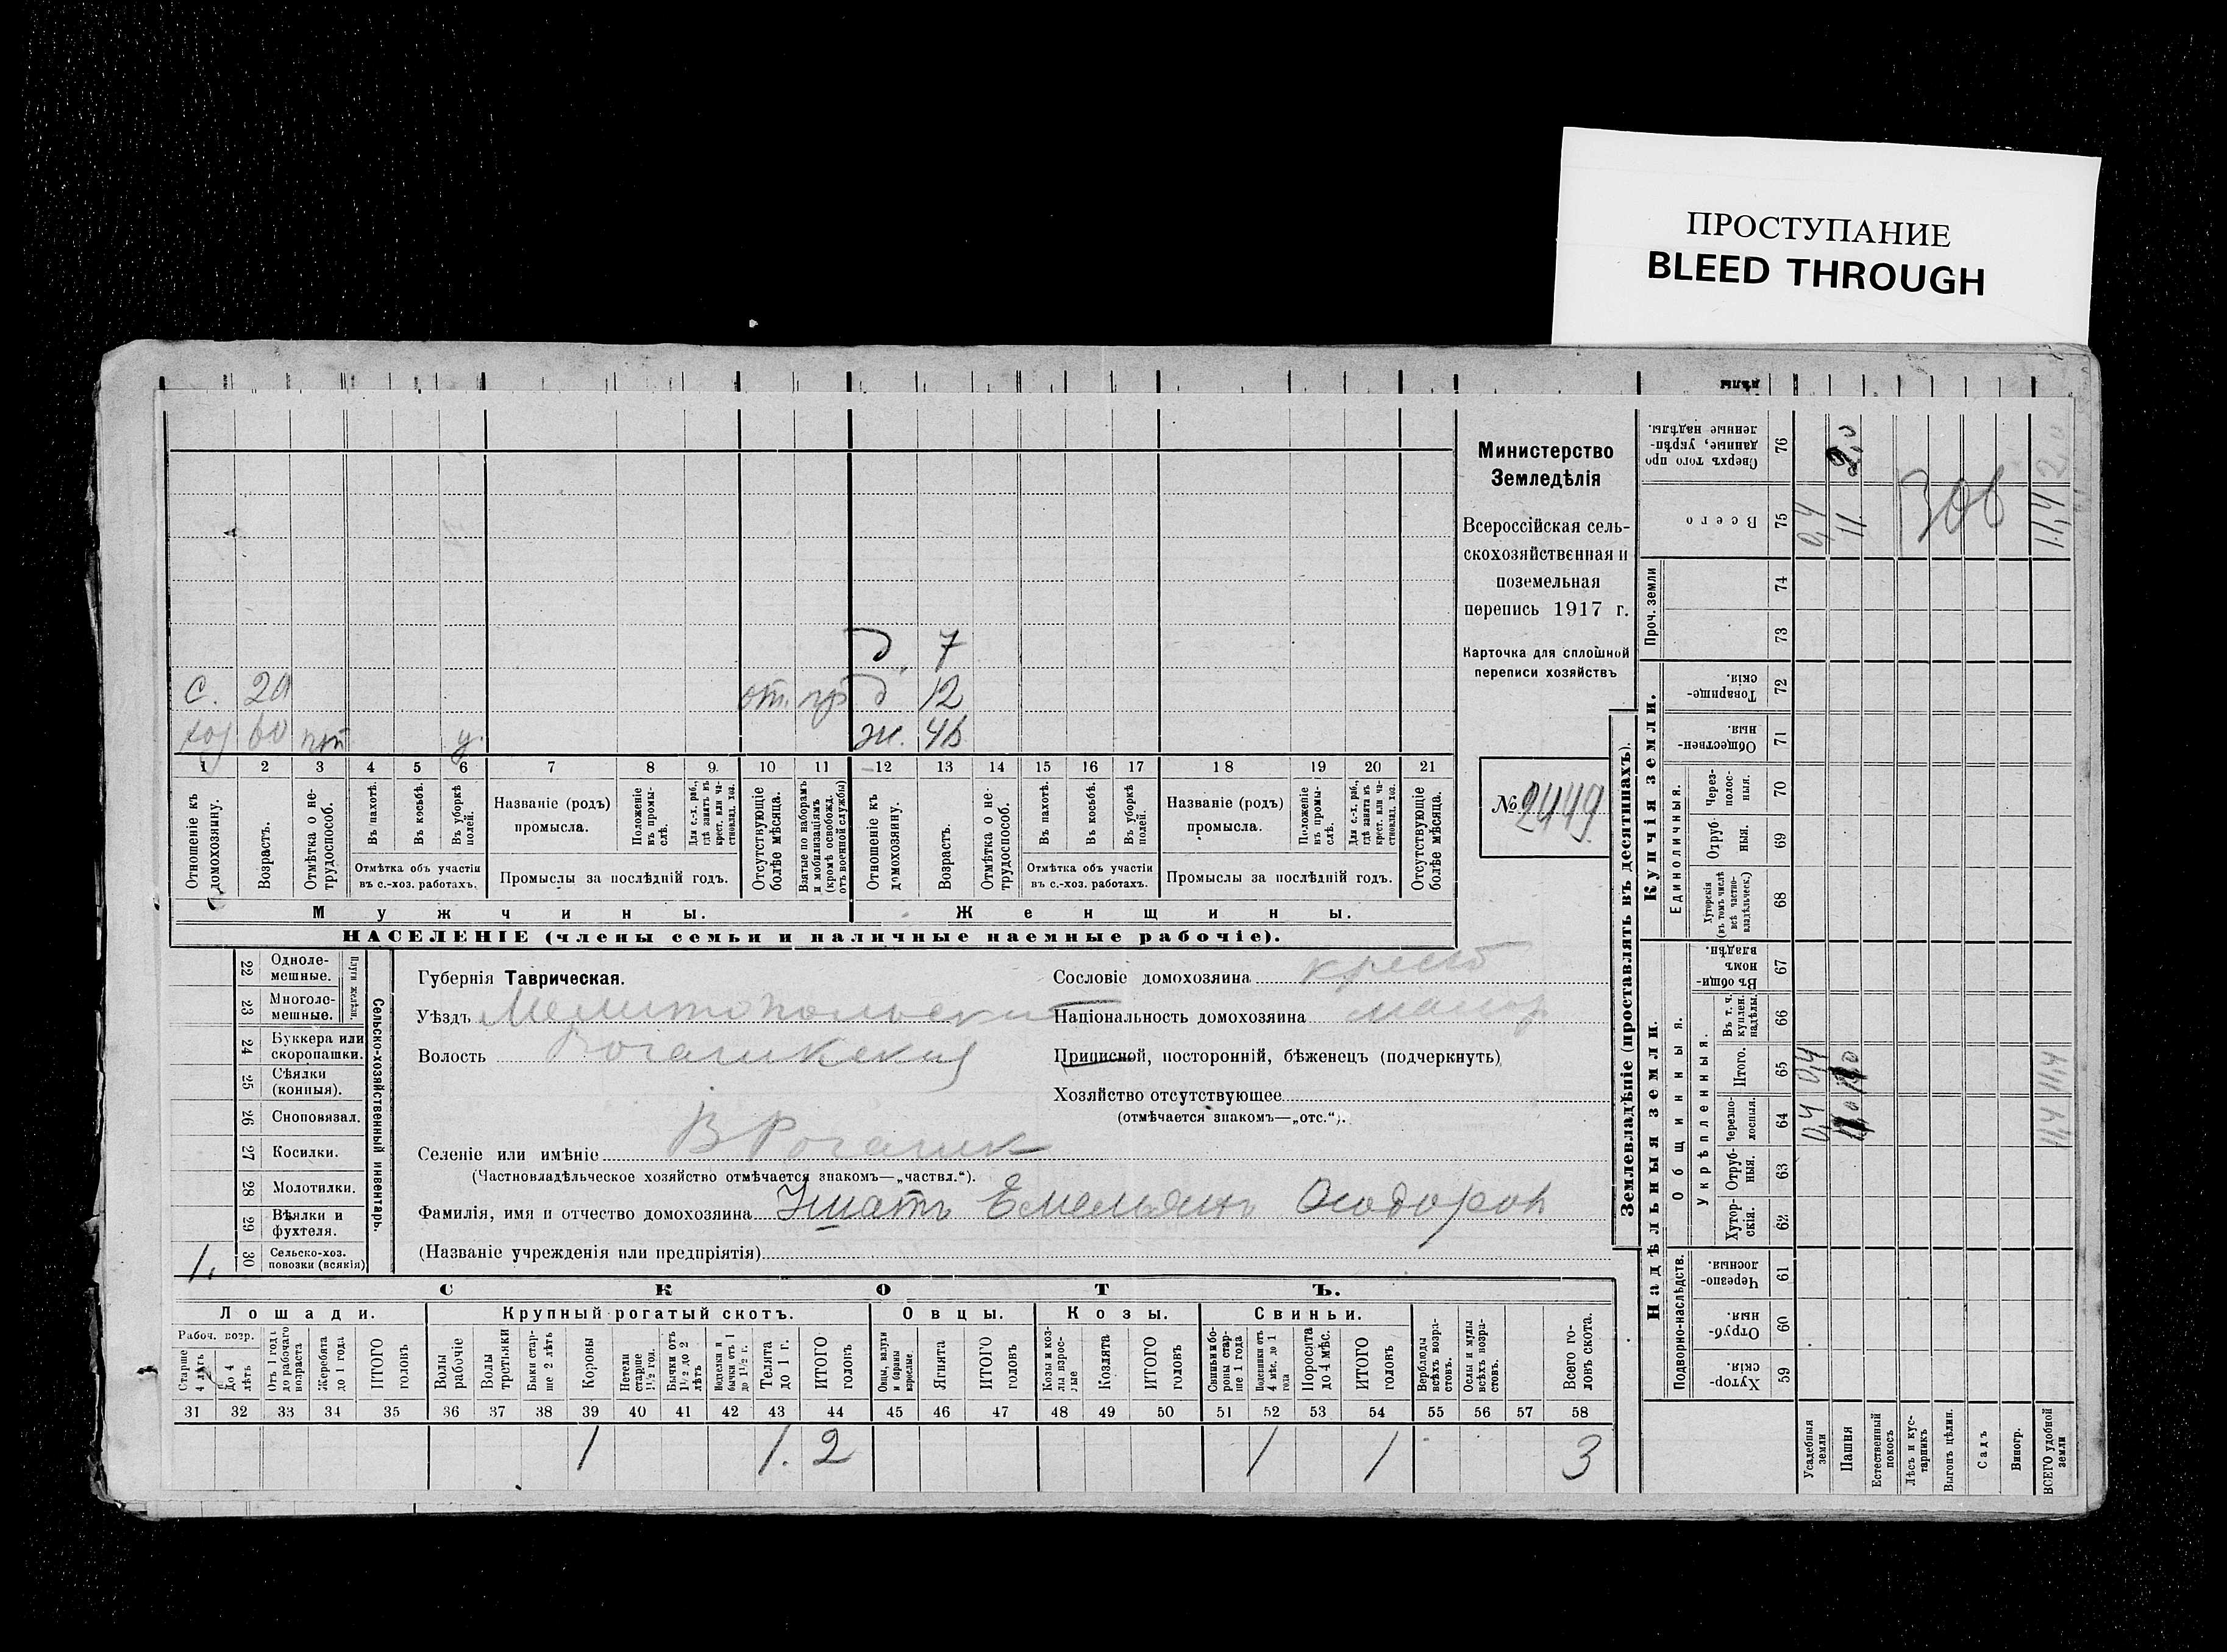 ПРОСТУПАНИЕ
BLEED THROUGH
Министерство
Земледѣлія
Всероссійская сель-
скохозяйственная и
поземельная
перепись 1917 г.
Карточка для сплошной
переписи хозяйствъ
№ 2449
д. 7
с. 20 от. пр д 12
хоз 60 у. ж. 46
1 2 3 4 5 6 7 8 9 10 11 12 13 14 15 16 17 18 19 20 21
Отношеніе къ домохозяину.
Возрастъ.
Отмѣтка о не-трудоспособ.
Въ пахотѣ.
Въ косьбѣ.
Въ уборкѣ полей.
Отмѣтка объ участіи
въ с.-хоз. работахъ.
Названіе (родъ)
промысла.
Положеніе въ промы-слѣ.
Для с.-х. раб., гдѣ занятъ въ крест. или ча-стновлад. хоз.
Промыслы за послѣдній годъ.
Отсутствующіе болѣе мѣсяца.
Взятые по наборамъ и мобилизаціямъ (кромѣ освобожд. отъ военной службы)
Отношеніе къ домохозяину.
Возрастъ.
Отмѣтка о не-трудоспособ.
Въ пахотѣ.
Въ косьбѣ.
Въ уборкѣ полей.
Отмѣтка объ участіи
въ с.-хоз. работахъ.
Названіе (родъ)
промысла.
Положеніе въ промы-слѣ.
Для с.-х. раб., гдѣ занята въ крест. или ча-стновлад. хоз.
Промыслы за послѣдній годъ.
Отсутствующіе болѣе мѣсяца.
Мужчины. Женщины.
НАСЕЛЕНІЕ (члены семьи и наличные наемные рабочіе).
22 Одноле-мешные.
23 Многоле-мешные.
Плуги желѣзн.
24 Буккера или скоропашки.
25 Сѣялки (конныя).
26 Сноповязал.
27 Косилки.
28 Молотилки.
29 Вѣялки и фухтеля.
1. 30 Сельско-хоз. повозки (всякія)
Сельско-хозяйственный инвентарь.
Губернія Таврическая.
Уѣздъ Мелитопольский
Волость Рогачикская
Селеніе или имѣніе В Рогачик
(Частновладѣльческое хозяйство отмѣчается знакомъ—„частвл.“).
Фамилія, имя и отчество домохозяина Ушатъ Емельянъ Ѳеодоров
(Названіе учрежденія или предпріятія)
Сословіе домохозяина крест
Національность домохозяина малор
Приписной, посторонній, бѣженецъ (подчеркнуть)
Хозяйство отсутствующее
(отмѣчается знакомъ—„отс.“).
СКОТЪ.
Лошади. Крупный рогатый скотъ. Овцы. Козы. Свиньи.
Рабоч. возр.
Старше 4 лѣтъ
До 4 лѣтъ
Отъ 1 года до рабочаго возраста
Жеребята до 1 года
ИТОГО головъ
Волы рабочіе
Волы третьяки
Быки стар-ше 2 лѣтъ
Коровы
Нетели старше 1½ год.
Бычки отъ 1½ до 2 лѣтъ
Телята до 1 г.
ИТОГО головъ
Овцы, валухи и бараны взрослые
Ягнята
ИТОГО головъ
Козы и коз-лы взрос-лые
Козлята
ИТОГО головъ
Свиньи и бо-ровы стар-ше 1 года
Подсвинки отъ 4 мѣс. до 1 года
Поросята до 4 мѣс.
ИТОГО головъ
Верблюды всѣхъ возра-стовъ.
Ослы и мулы всѣхъ возра-стовъ.
Всего го-ловъ скота.
31 32 33 34 35 36 37 38 39 40 41 42 43 44 45 46 47 48 49 50 51 52 53 54 55 56 57 58
1 1. 2 1 1 3
Землевладѣніе (проставлять въ десятинахъ).
Надѣльныя земли. Купчія земли.
Подворно-наслѣдств.
Общинныя.
Укрѣпленныя.
Единоличныя.
Проч. земли
59 Хутор-скія.
60 Отруб-ныя.
61 Черезпо-лосныя.
62 Хутор-скія.
63 Отруб-ныя.
64 Черезпо-лосныя.
65 Итого.
66 Въ т. ч. куплен. надѣлы.
67 Въ общи-номъ владѣн.
68 Хуторскія (въ томъ числѣ всѣ частно-владѣльческ.)
69 Отруб-ныя.
70 Через-полос-ныя.
71 Обществен-ныя.
72 Товарище-скія.
73
74
75 Всего
76 Сверхъ того про-данные, укрѣп-ленные надѣлы.
Усадебныя земли 0,4 0,4 0,4
Пашня 11 2,0
Естественный покосъ
Лѣсъ и кус-тарникъ
Выгонъ цѣлин.
Садъ
Виногр.
ВСЕГО удобной земли 11,4 11,4 11,4 2,0